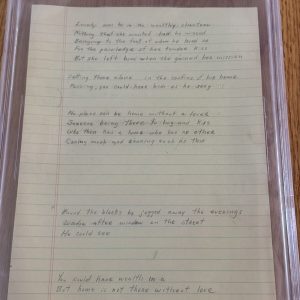 Lonely was he in the wealthy downtown
Nothing that she wanted had he missed
Bringing to the feet of whom he loved so
For the privilege of her Kiss
But she left him when she gained her mission
Sitting there alone in the confines of his home
Passing, you could hear him as he sang
No place can be home without a loved
Someone being there to hug and Kiss
Who then has a home who has no other
Caring much and sharing such as this
Round the blocks he jogged away the evenings
Window after window on the street
He could see
You could have wealth in a
But home is not there without love